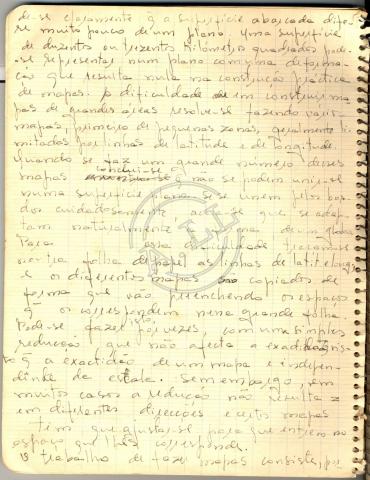 de-se claramente q a superfície abarcada difere
se muito pouco de um plano. Uma superfície
de duzentos ou trezentos kilómetros quadrados pode-
-se representar num plano com uma deforma-
ção que resulta nula na construção práctica
de mapas. A dificuldade em construir ma
pas de grandes áreas resolve-se fazendo vários
mapas, primeiro de pequenas zonas, geralmente li-
mitados por linhas de latitude e de longitude.
Quando se faz um grande número desses
mapas conclui-se q não se podem unir-se
numa superfície plana. Se se unem pelos bor-
dos cuidadosamente, acha-se que se adap-
tam naturalmente à forma de um globo.
Para essa dificuldade traçam-se
nortra folha de papel as linhas de latit e long
e os diferentes mapas são copiados de
forma que vão preenchendo os espaços
q os correspondem nessa grande folha.
Pode-se fazer, por vezes, com uma simples
redução que não afecta a exactidão
q a exactidão de um mapa é indepen-
dente da escala. Sem embargo, em
muitos casos a redução não resulta
em diferentes direcções e certos mapas
têm que ajustar-se para que entrem no
espaço que lhes corresponde.
O trabalho de fazer mapas consiste, por